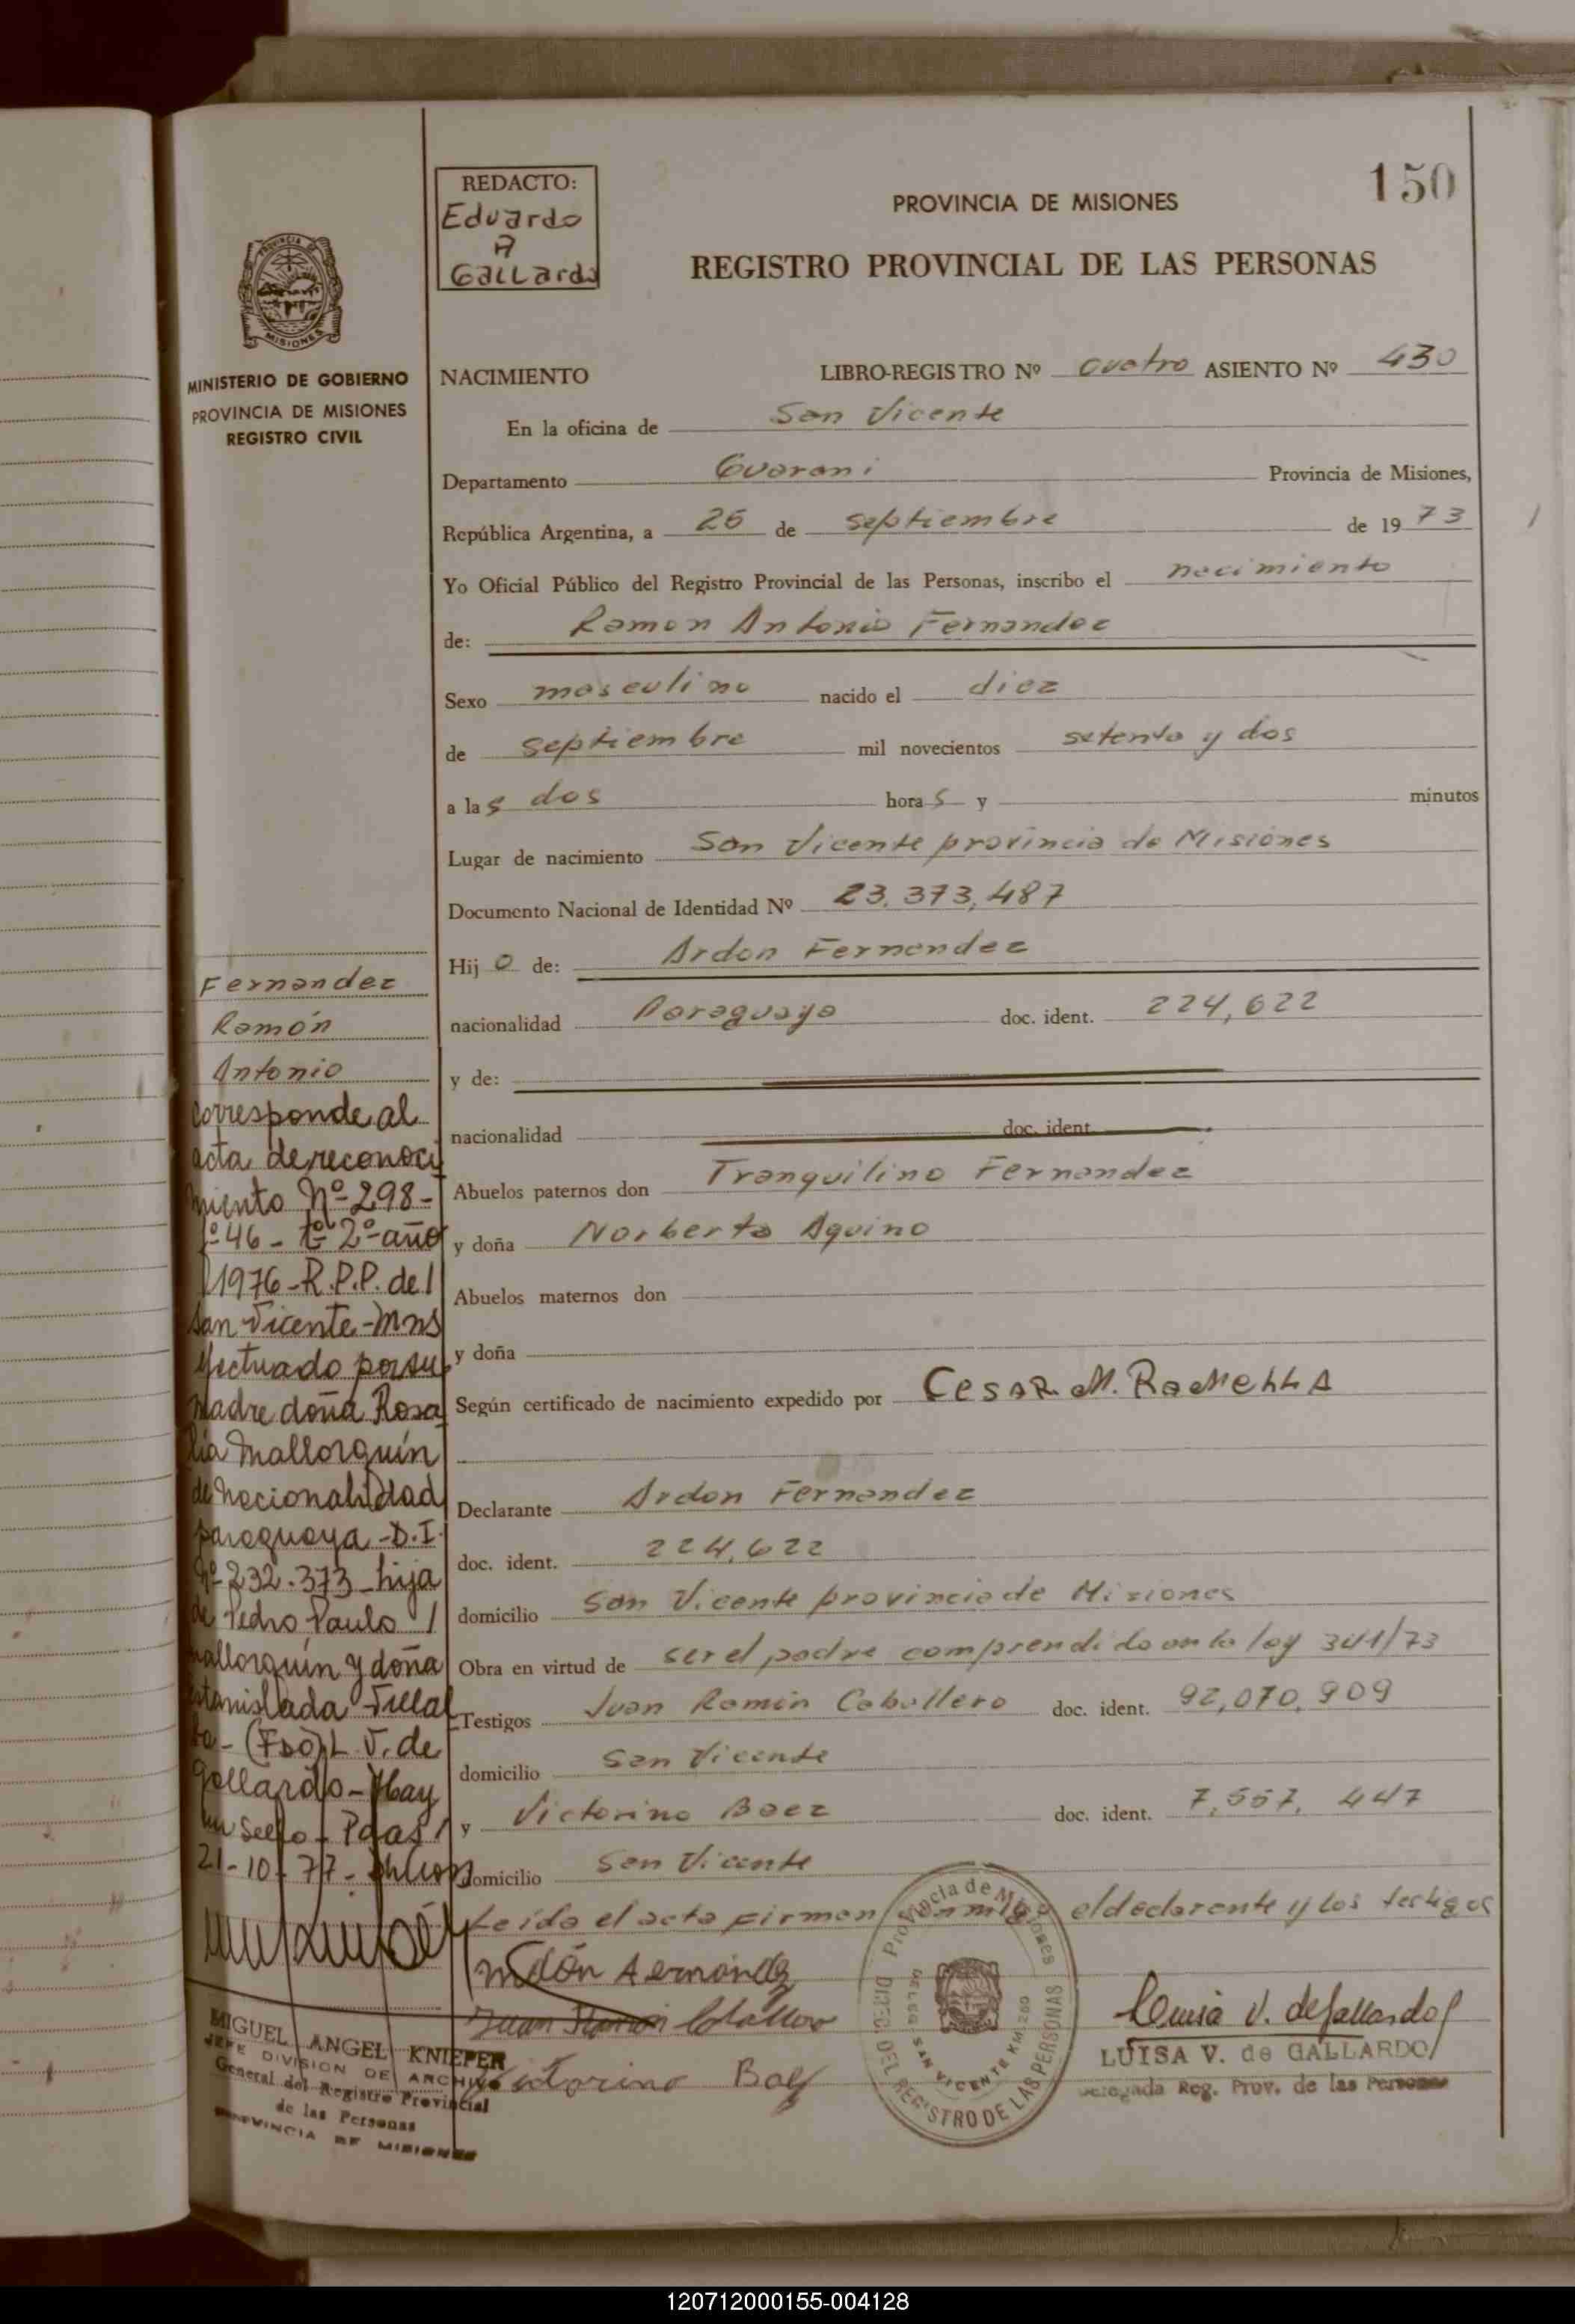 REDACTO:
Eduardo
A
Gallardo
PROVINCIA DE MISIONES
150
REGISTRO PROVINCIAL DE LAS PERSONAS
PROVINCIA DE
MISIONES
MINISTERIO DE GOBIERNO
PROVINCIA DE MISIONES
REGISTRO CIVIL
NACIMIENTO LIBRO-REGISTRO Nº cuatro ASIENTO Nº 430
En la oficina de San Vicente
Departamento Guarani Provincia de Misiones,
República Argentina, a 26 de septiembre de 1973
Yo Oficial Público del Registro Provincial de las Personas, inscribo el nacimiento
de: Ramon Antonio Fernandez
Sexo masculino nacido el diez
de septiembre mil novecientos setenta y dos
a las dos horas y minutos
Lugar de nacimiento San Vicente provincia de Misiones
Documento Nacional de Identidad Nº 23.373,487
Hijo de: Ardon Fernandez
nacionalidad Paraguaya doc. ident. 224,622
y de:
nacionalidad doc. ident.
Abuelos paternos don Tranquilino Fernandez
y doña Norberta Aquino
Abuelos maternos don
y doña
Según certificado de nacimiento expedido por Cesar M. Ramella
Declarante Ardon Fernandez
doc. ident. 224,622
domicilio San Vicente provincia de Misiones
Obra en virtud de ser el padre comprendido en la ley 341/73
Testigos Juan Ramón Caballero doc. ident. 92,070,909
domicilio San Vicente
y Victorino Baez doc. ident. 7,557,447
domicilio San Vicente
Leída el acta firman conmigo el declarante y los testigos
Juan Ramon Caballero
Victorino Baez
Provincia de Misiones
DELEG. SAN VICENTE KM. 260
DIREC. DEL REGISTRO DE LAS PERSONAS
Luisa V. de Gallardo
LUISA V. de GALLARDO
Delegada Reg. Prov. de las Personas
Fernandez
Ramón
Antonio
Corresponde al
acta de reconoci
miento Nº 298-
fº 46 - tº 2º año
1976 - R.P.P. de
San Vicente - Mns
efectuado por su
madre doña Rosa
lia Mallorquín
de nacionalidad
paraguaya - D.I.
Nº 232.373 - hija
de Pedro Paulo
Mallorquín y doña
Estanislada Villal
ba - (Fdo) L V. de
Gallardo - Hay
un sello - Pdas
21-10-77 -
MIGUEL ANGEL KNIEPER
JEFE DIVISION DE ARCHIVO
General del Registro Provincial
de las Personas
PROVINCIA DE MISIONES
120712000155-004128